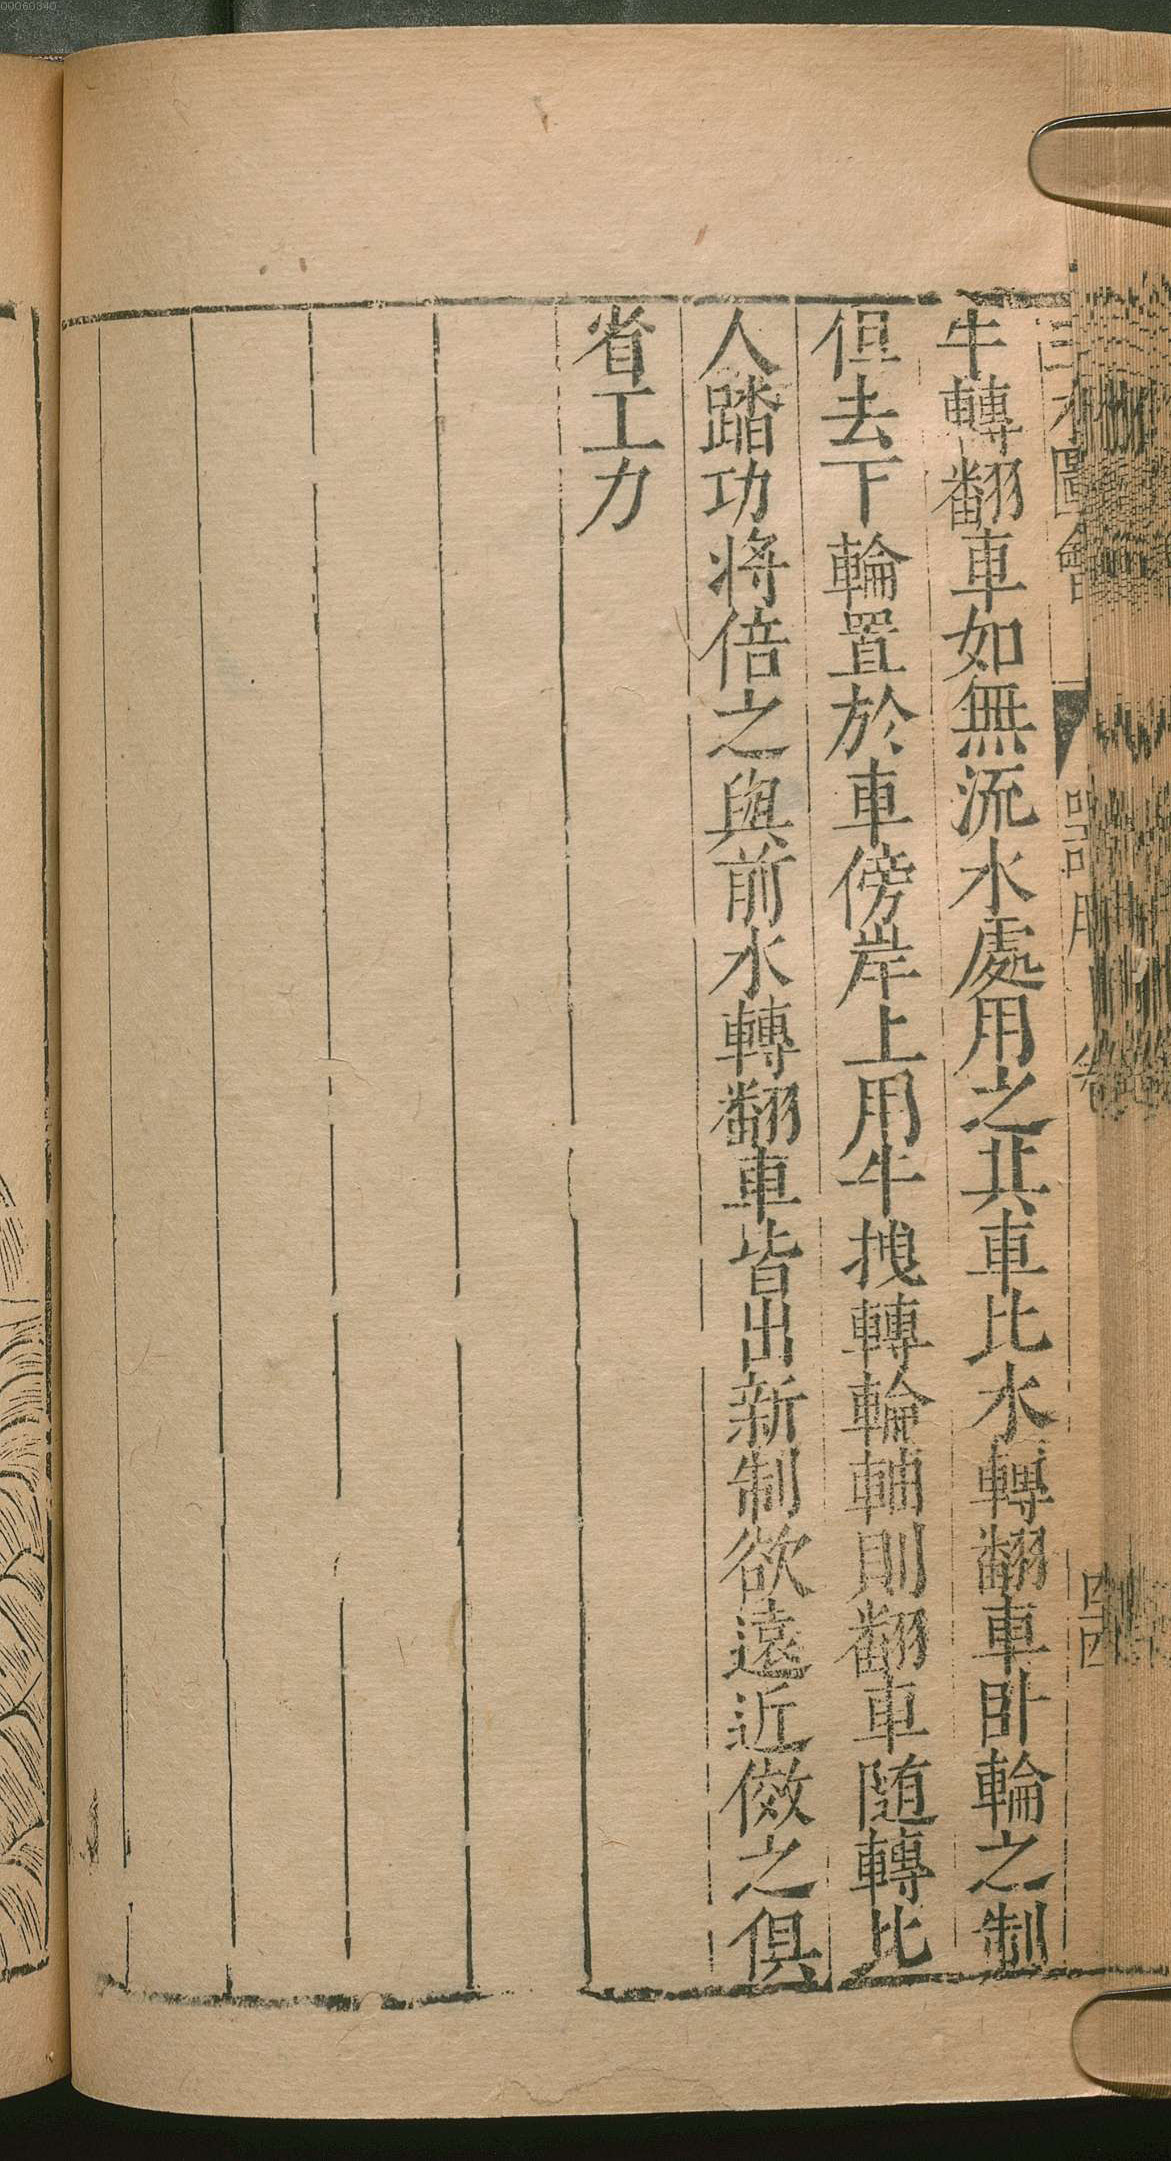 牛轉翻車如無流水處用之其車比水轉翻車卧輪之制
但去下輪置於車傍岸上用牛拽轉輪軸則翻車随轉比
人踏功將倍之與前水轉翻車皆出新制欲遠近傚之俱
省工力
圖會
器用
00060340